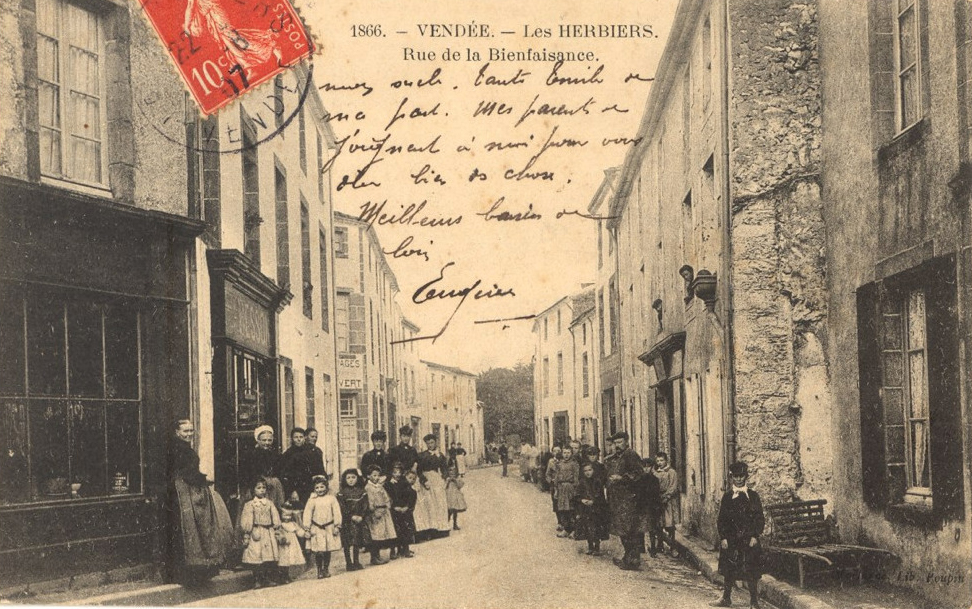 1866. - VENDÉE. - Les HERBIERS.
Rue de la Bienfaisance.
10c
POSTES
VENDÉE
de
ma part. Mes parents se
joignent à moi pour vous
bien des choses.
Meilleurs baisers de
loin
Eugénie
AGES
VERT
Lib. Poupin